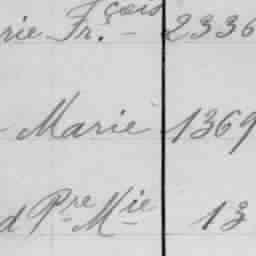 rie Fr.çois 2336
- Marie 1369
d Pre Mie 13